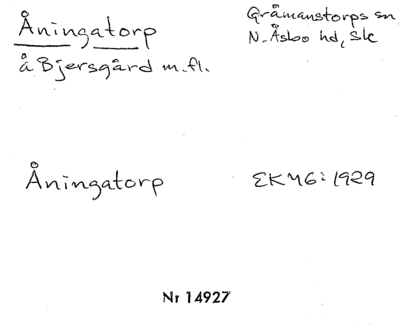 Åningatorp
Gråmanstorps sn
N. Åsbo hd, Sk
å Bjersgård m.fl.
Åningatorp
EK 46: 1929
Nr 14927